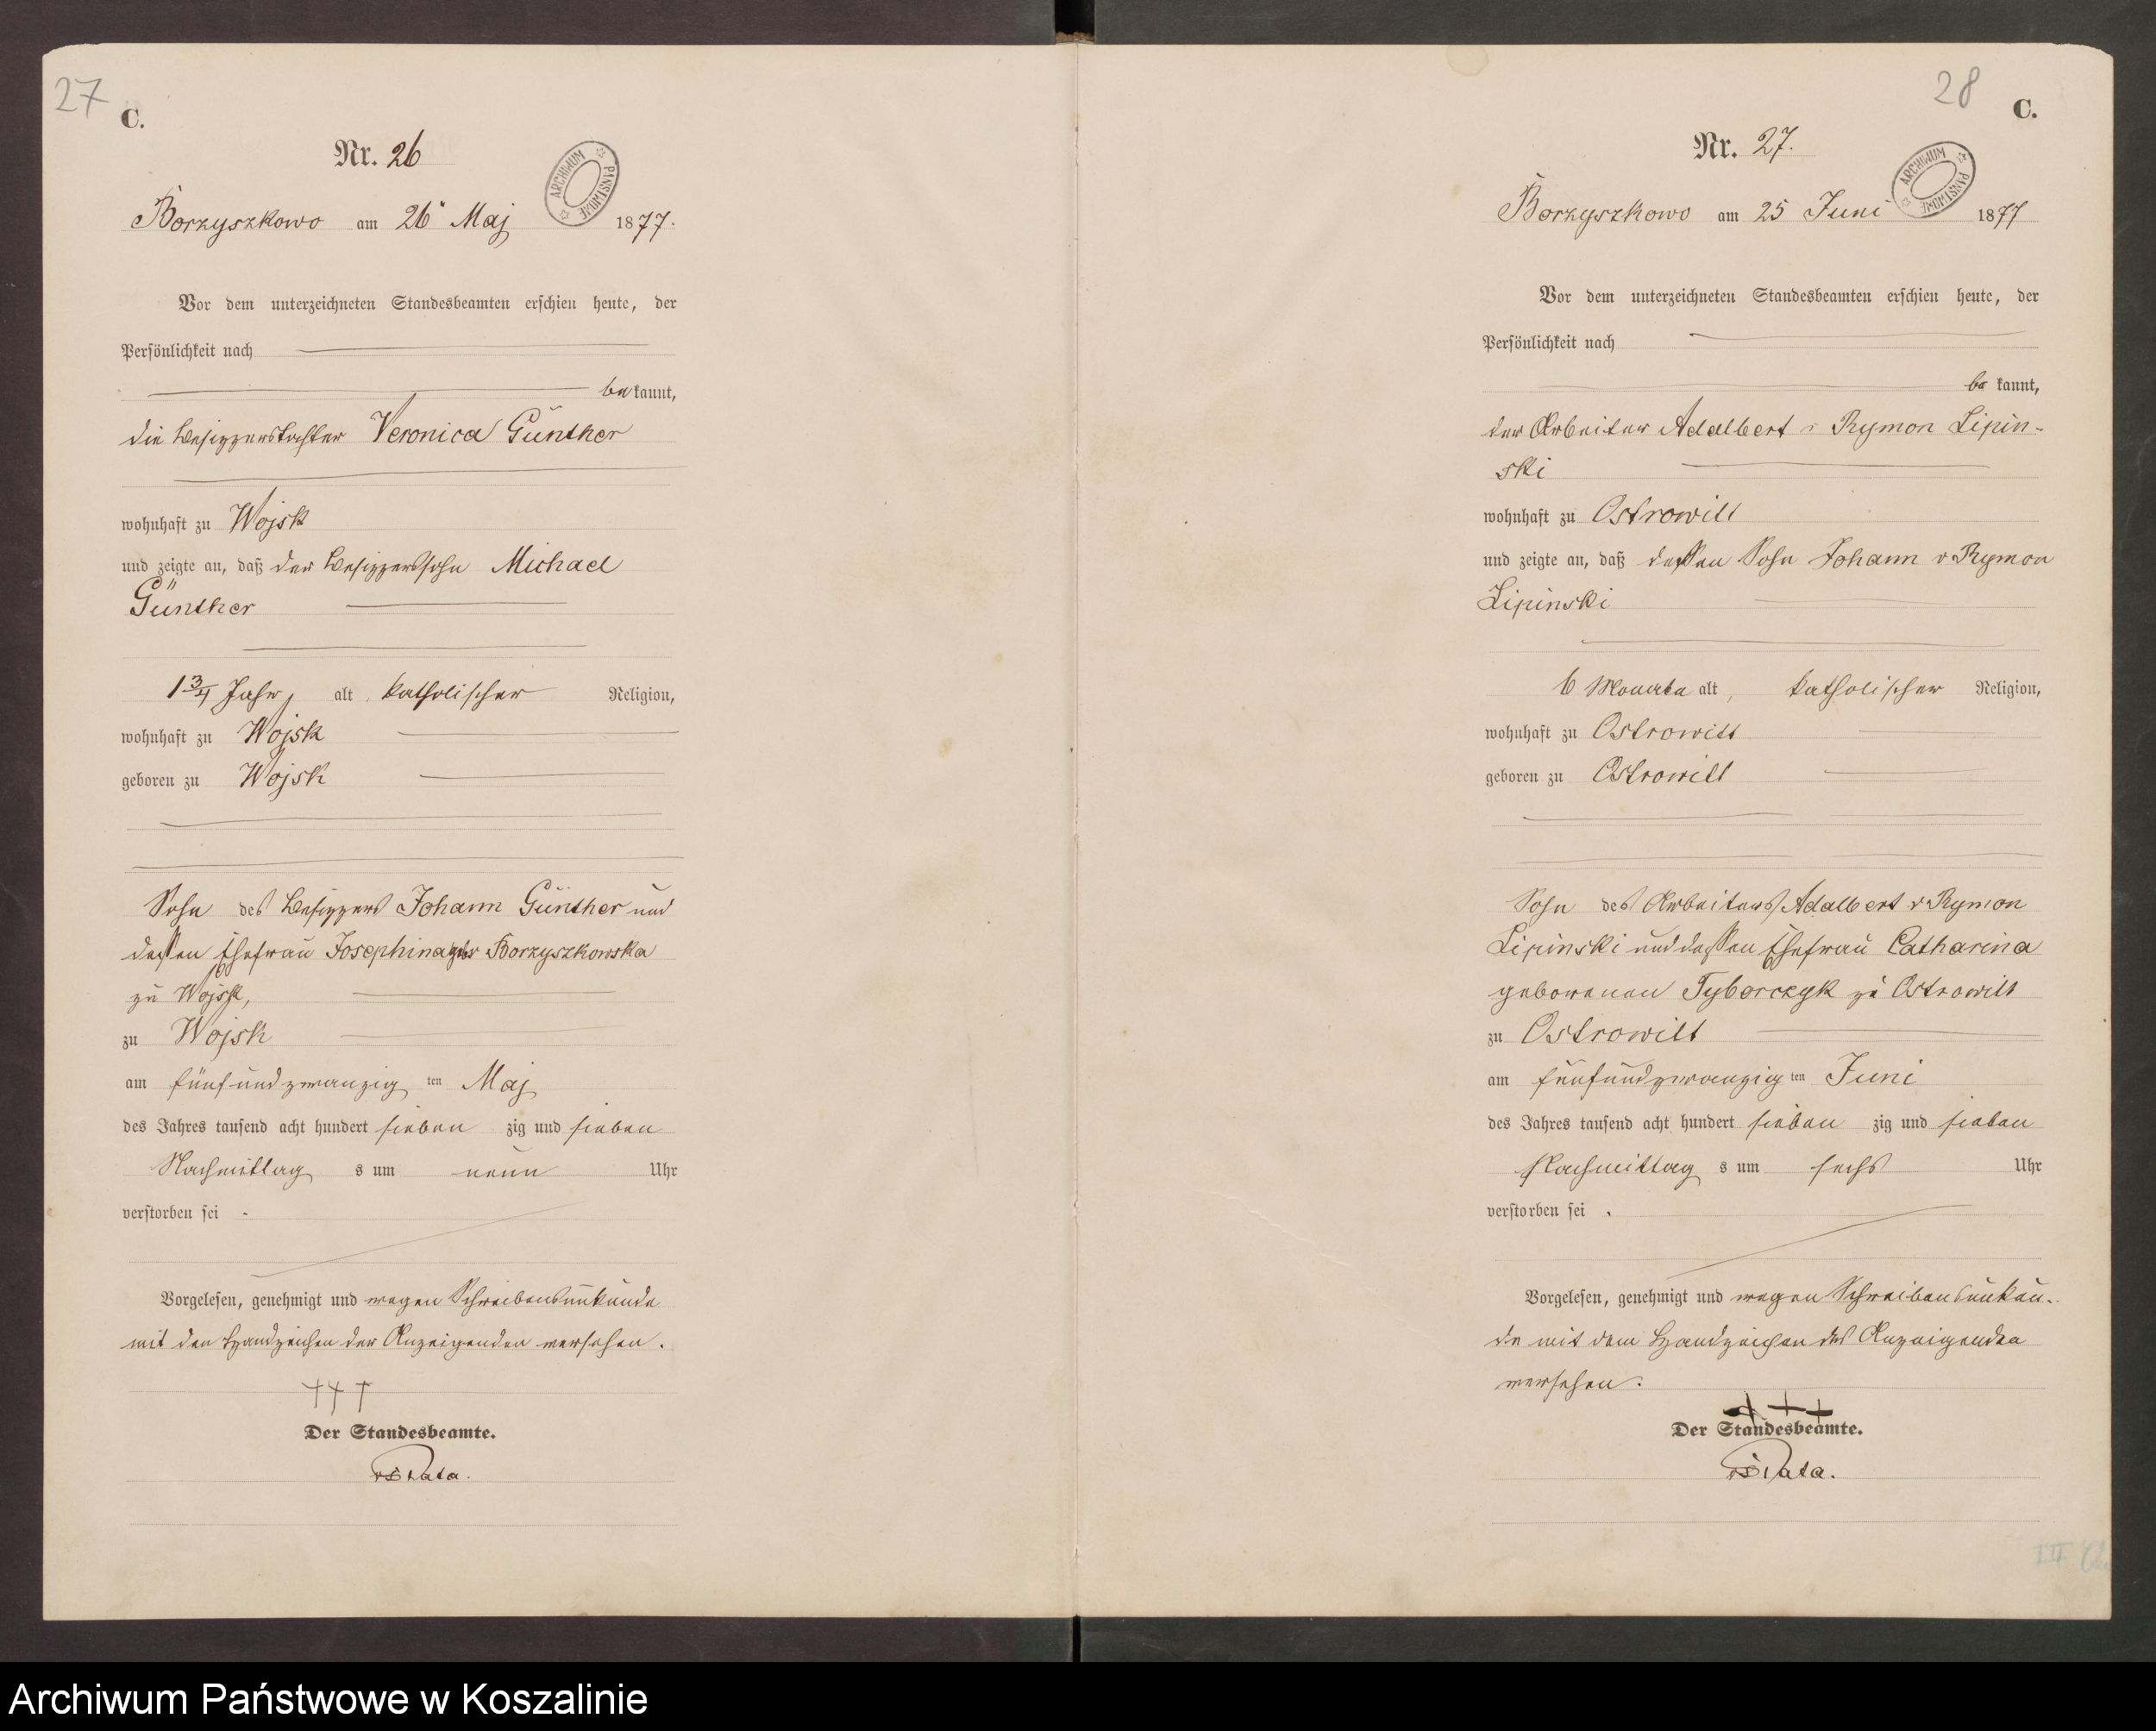 27
C.
Nr. 26
ARCHIWUM PAŃSTWOWE
Borzyszkowo am 26 Maj 1877.
Vor dem unterzeichneten Standesbeamten erschien heute, der
Persönlichkeit nach
be kannt,
die Besitzerstochter Veronica Günther
wohnhaft zu Wojsk
und zeigte an, daß der Besitzerssohn Michael
Günther
1 3/4 Jahr, alt, katholischer Religion,
wohnhaft zu Wojsk
geboren zu Wojsk
Sohn des Besitzers Johann Günther und
dessen Ehefrau Josephina geb Borzyszkowska
zu Wojsk,
zu Wojsk
am fünfundzwanzig ten Maj
des Jahres tausend acht hundert sieben zig und sieben
Nachmittag s um neun Uhr
verstorben sei.
Vorgelesen, genehmigt und wegen Schreibensunkunde
mit den Handzeichen der Anzeigenden versehen.
† † †
Der Standesbeamte.
28
C.
Nr. 27.
ARCHIWUM PAŃSTWOWE
Borzyszkowo am 25 Juni 1877
Vor dem unterzeichneten Standesbeamten erschien heute, der
Persönlichkeit nach
be kannt,
der Arbeiter Adalbert v Rymon Lipin-
ski
wohnhaft zu Ostrowitt
und zeigte an, daß dessen Sohn Johann v Rymon
Lipinski
6 Monate alt, katholischer Religion,
wohnhaft zu Ostrowitt
geboren zu Ostrowitt
Sohn des Arbeiters Adalbert v Rymon
Lipinski und dessen Ehefrau Catharina
geborenen Tyborczyk zu Ostrowitt
zu Ostrowitt
am fünfundzwanzig ten Juni
des Jahres tausend acht hundert sieben zig und sieben
Nachmittag s um sechs Uhr
verstorben sei.
Vorgelesen, genehmigt und wegen Schreibensunkun-
de mit dem Handzeichen des Anzeigenden
versehen.
+ + +
Der Standesbeamte.
Archiwum Państwowe w Koszalinie